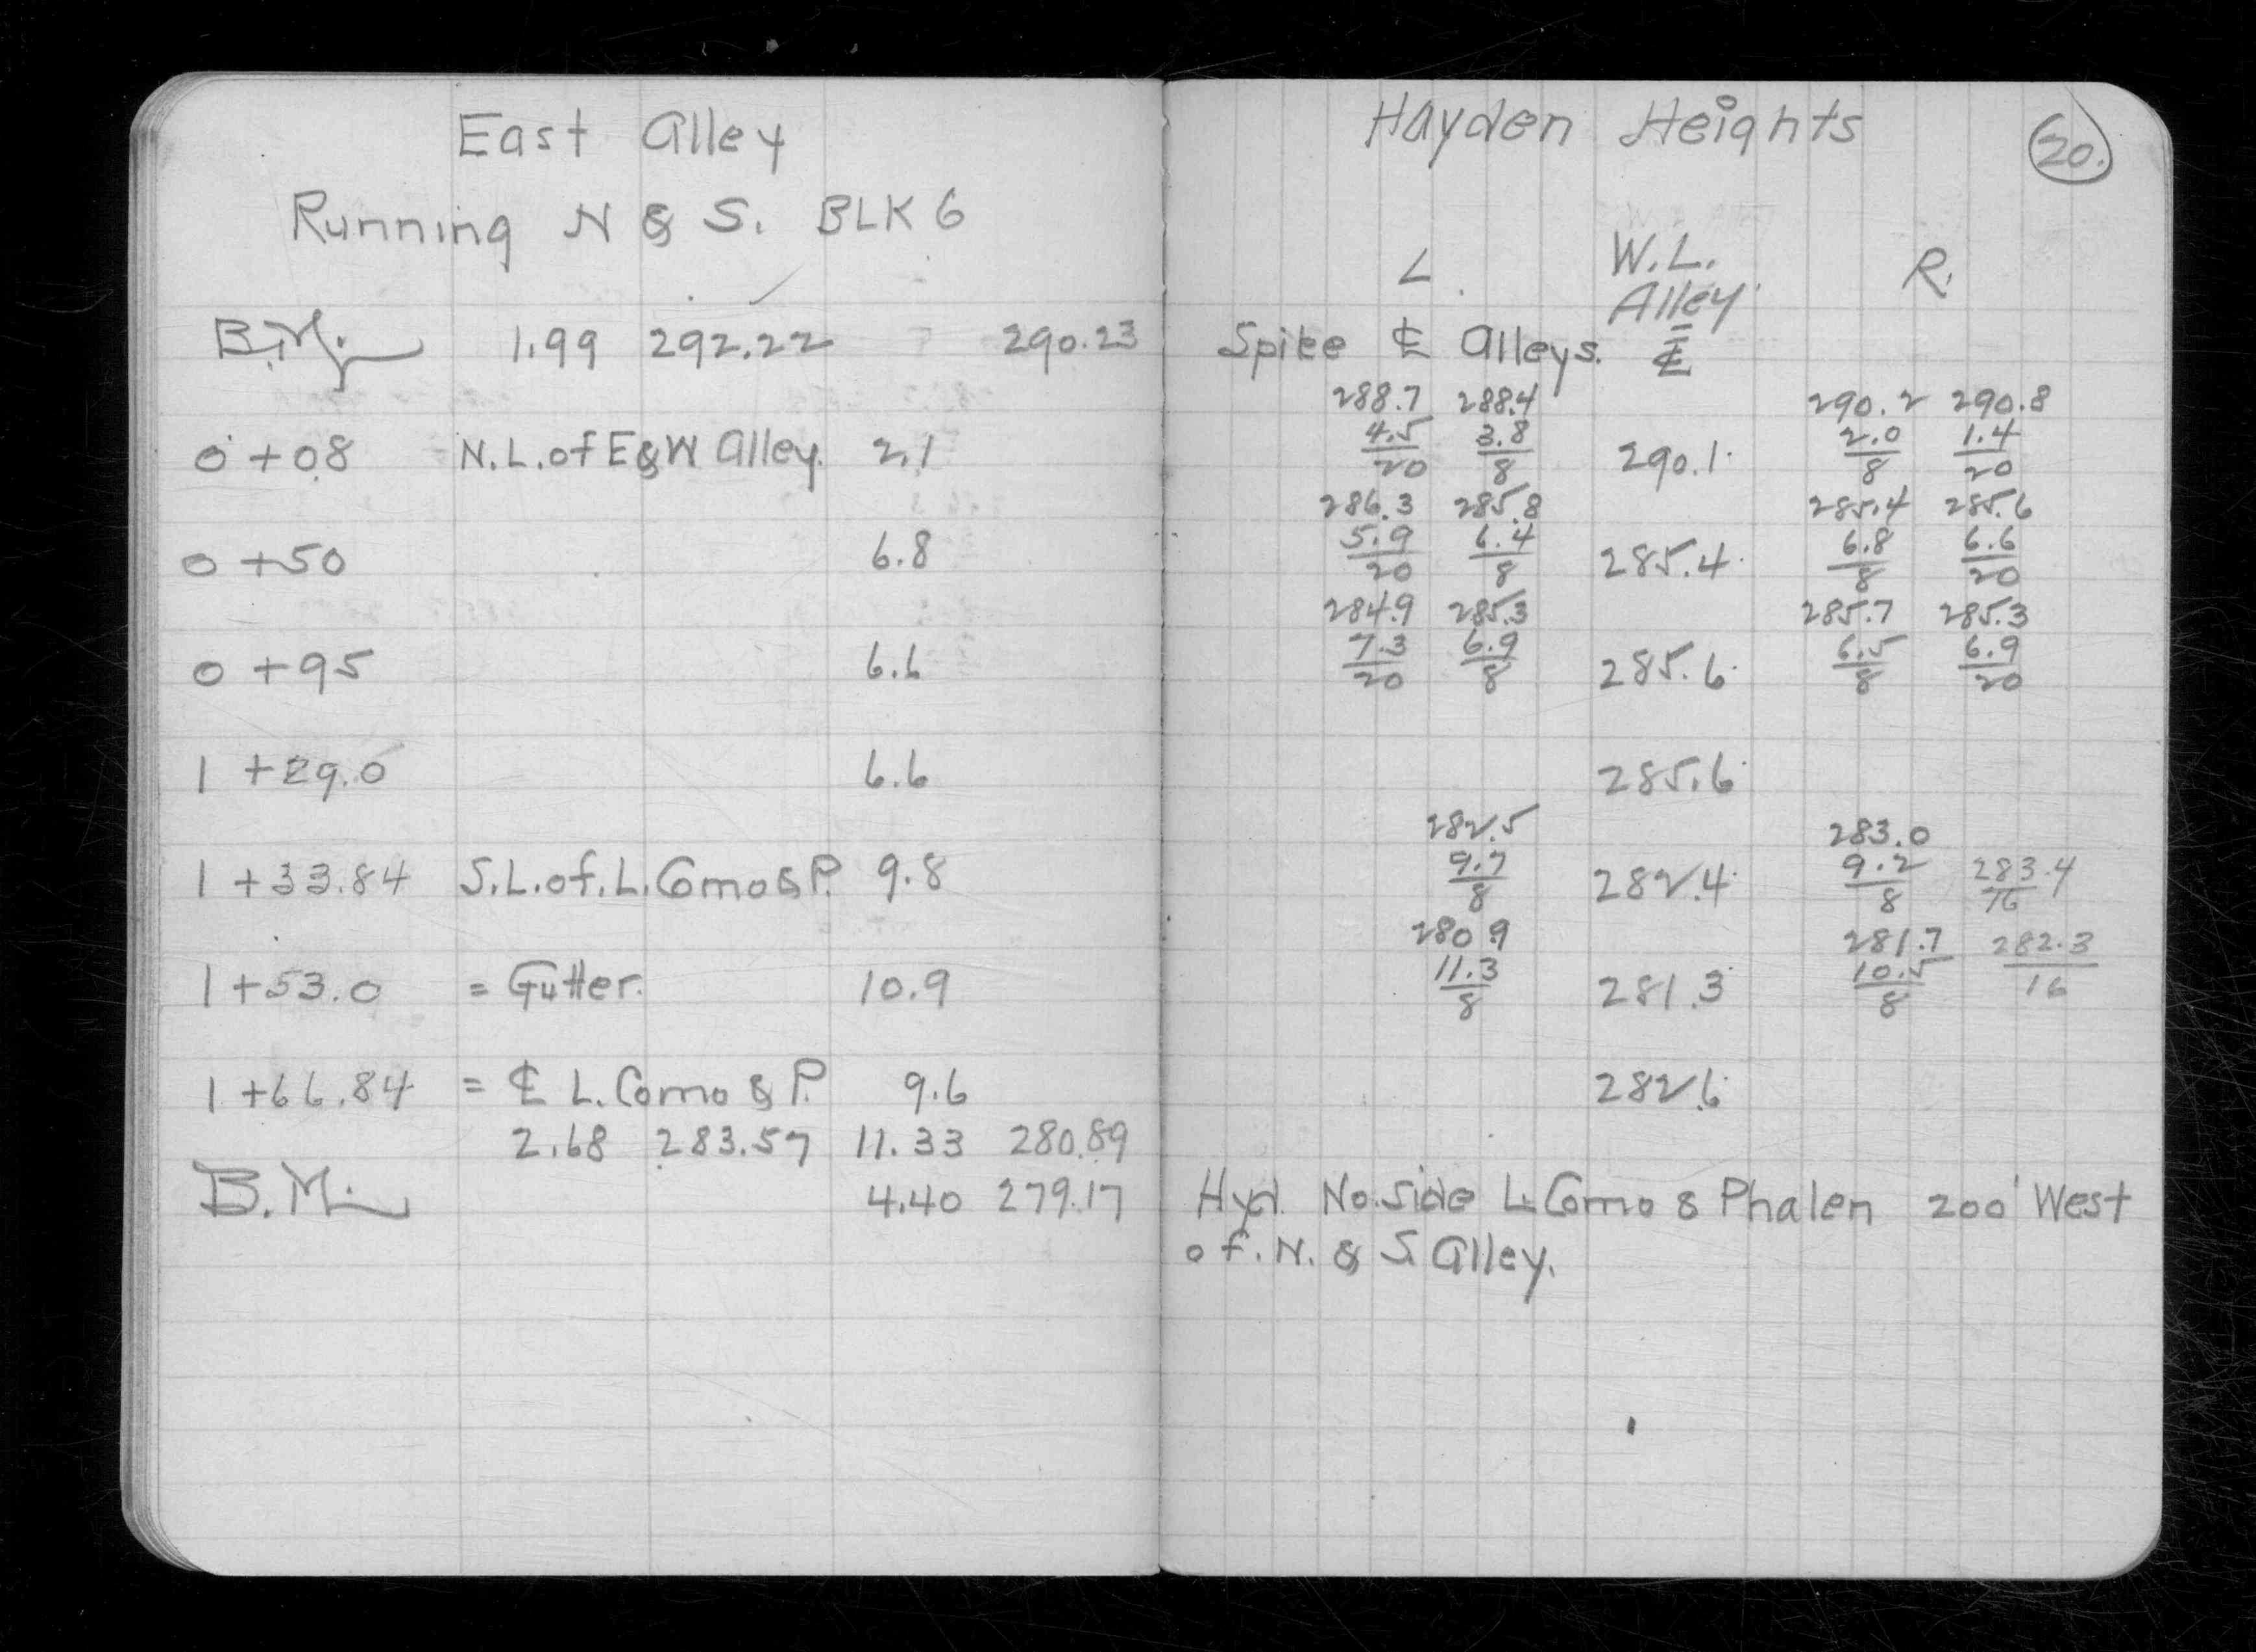 East Alley
Running N & S. BLK 6
B.M. 1.99 292.22 290.23
0+08 N.L. of E&W Alley. 2.1
0+50 6.8
0+95 6.6
1+29.0 6.6
1+33.84 S.L. of. L. Como & P. 9.8
1+53.0 = Gutter. 10.9
1+66.84 = ℄ L. Como & P. 9.6
2.68 283.57 11.33 280.89
B.M. 4.40 279.17
Hayden Heights
20.
W.L.
L. Alley R.
Spike ℄ Alleys. ℄
288.7 288.4 290.2 290.8
4.5/20 3.8/8 290.1 2.0/8 1.4/20
286.3 285.8 285.4 285.6
5.9/20 6.4/8 285.4 6.8/8 6.6/20
284.9 285.3 285.7 285.3
7.3/20 6.9/8 285.6 6.5/8 6.9/20
285.6
282.5 283.0
9.7/8 282.4 9.2/8 283.4/16
280.9 281.7
11.3/8 281.3 10.5/8 282.3/16
282.6
Hyd. No. Side L. Como & Phalen 200' West
of. N. & S. Alley.